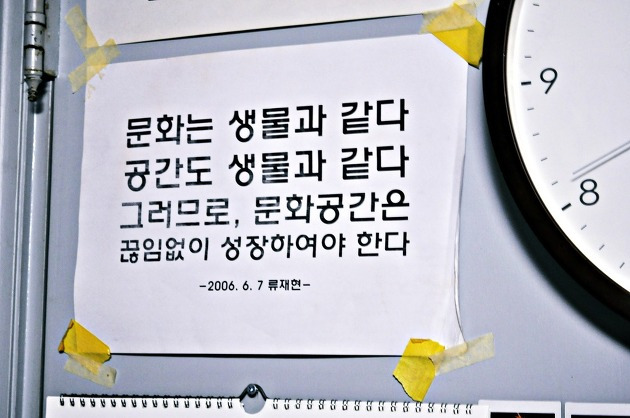 문화는 생물과 같다
공간도 생물과 같다
그러므로, 문화공간은
끊임없이 성장하여야 한다
-2006. 6. 7 류재현-
9
8